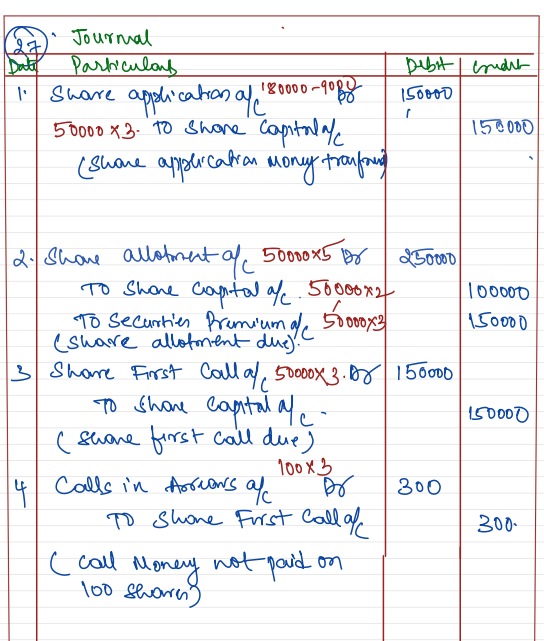 27. Journal
Date Particulars Debit Credit
1. Share application a/c 180000-9000 Dr 150000
50000 x 3. To Share Capital a/c 150000
(Share application Money transferred)
2. Share allotment a/c 50000x5 Dr 250000
To Share Capital a/c. 50000x2 100000
To Securities Premium a/c 50000x3 150000
(Share allotment due).
3 Share First Call a/c 50000x3. Dr 150000
To Share Capital a/c. 150000
(Share first call due)
100x3
4 Calls in Arrears a/c Dr 300
To Share First Call a/c 300.
(Call Money not paid on
100 shares)